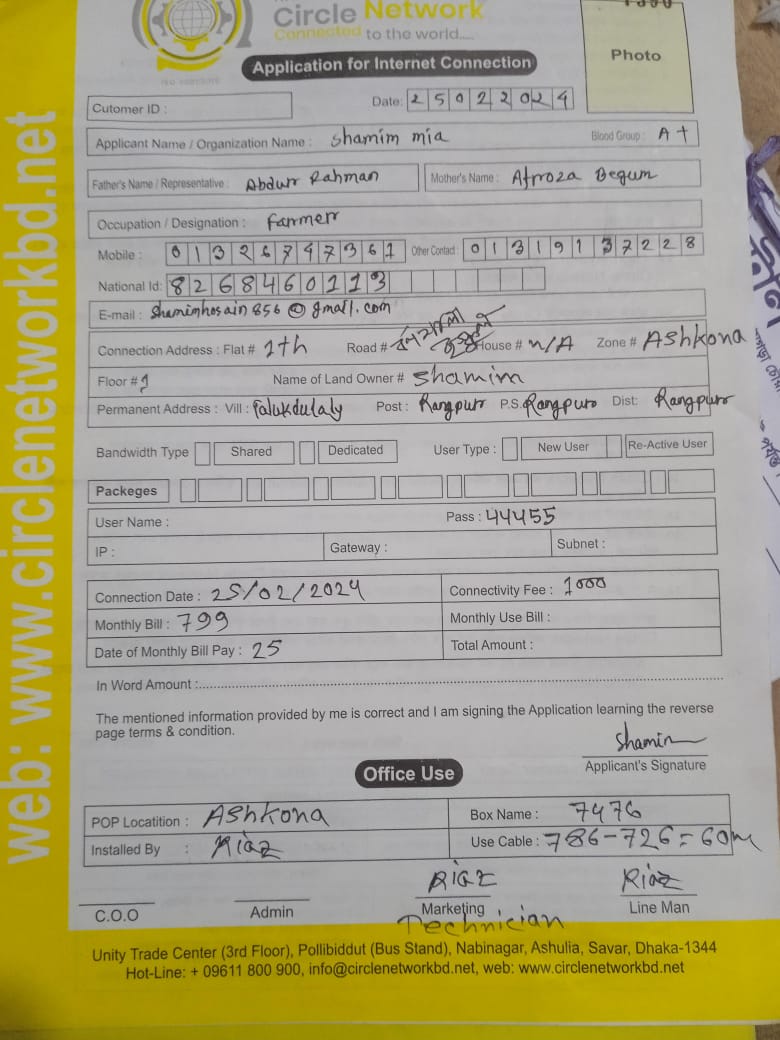 Circle Network
Connected to the world....
Application for Internet Connection
Photo
Cutomer ID :
Date: 25022024
Applicant Name / Organization Name : Shamim mia
Blood Group : A+
Father's Name / Representative : Abdur Rahman
Mother's Name : Afroza Begum
Occupation / Designation : Farmer
Mobile : 01326747361
Other Contact : 01319137228
National Id: 8268460113
E-mail : shamimhosain856@gmail.com
Connection Address : Flat # 1th Road # House # N/A Zone # Ashkona
Floor # 1 Name of Land Owner # Shamim
Permanent Address : Vill : Falukdulaly Post : Rangpur P.S. Rangpur Dist: Rangpur
Bandwidth Type Shared Dedicated User Type : New User Re-Active User
Packeges
User Name : Pass : 44455
IP : Gateway : Subnet :
Connection Date : 25/02/2024 Connectivity Fee : 1000
Monthly Bill : 799 Monthly Use Bill :
Date of Monthly Bill Pay : 25 Total Amount :
In Word Amount :
The mentioned information provided by me is correct and I am signing the Application learning the reverse
page terms & condition.
Shamim
Applicant's Signature
Office Use
POP Locatition : Ashkona Box Name : 7476
Installed By : Riaz Use Cable : 786-726=60m
Riaz Riaz
C.O.O Admin Marketing Line Man
Technician
Unity Trade Center (3rd Floor), Pollibiddut (Bus Stand), Nabinagar, Ashulia, Savar, Dhaka-1344
Hot-Line: + 09611 800 900, info@circlenetworkbd.net, web: www.circlenetworkbd.net
web: www.circlenetworkbd.net